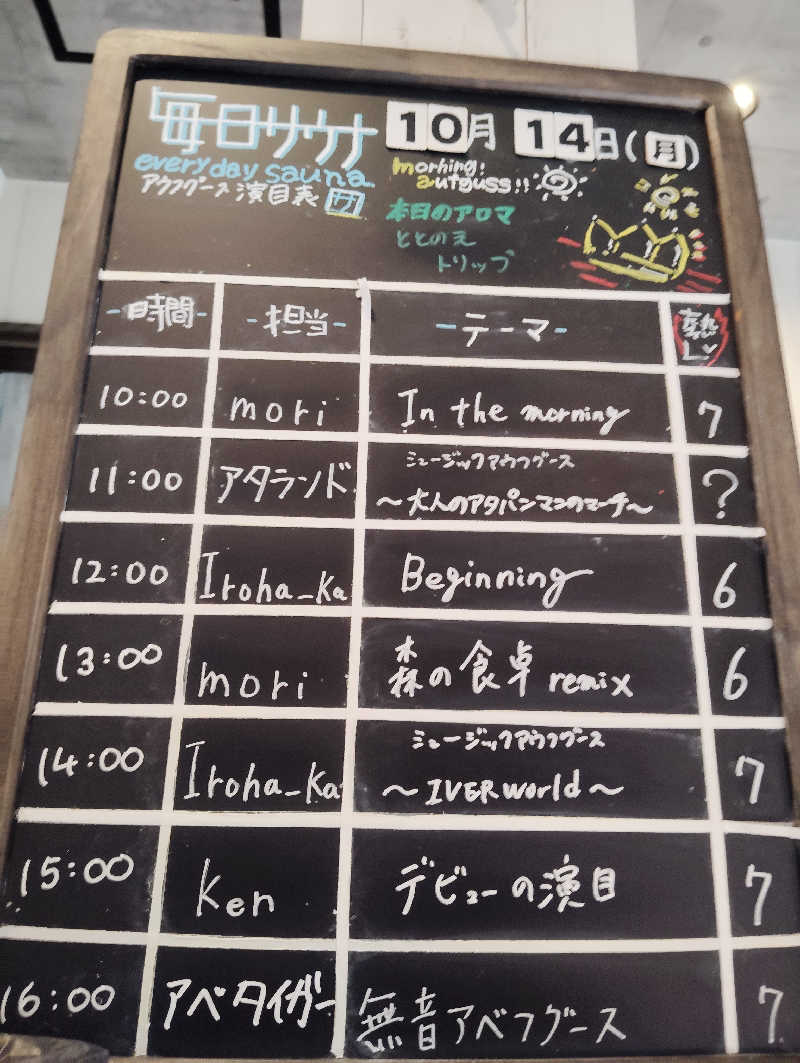 毎日サウナ 10月 14日(月)
everyday sauna
アウフグース 演目表
morning!
autguss!!
本日のアロマ
ととのえ
トリップ
-時間- -担当- -テーマ- 熱レベ
10:00 mori In the morning 7
11:00 アタランド ミュージックアウフグース
〜大人のアタパンマコのマーチ〜 ?
12:00 Iroha_Ka Beginning 6
13:00 mori 森の食卓 remix 6
14:00 Iroha_Ka ミュージックアウフグース
〜IVERworld〜 7
15:00 Ken デビューの演目 7
16:00 アベタイガー 無音アベフグース 7